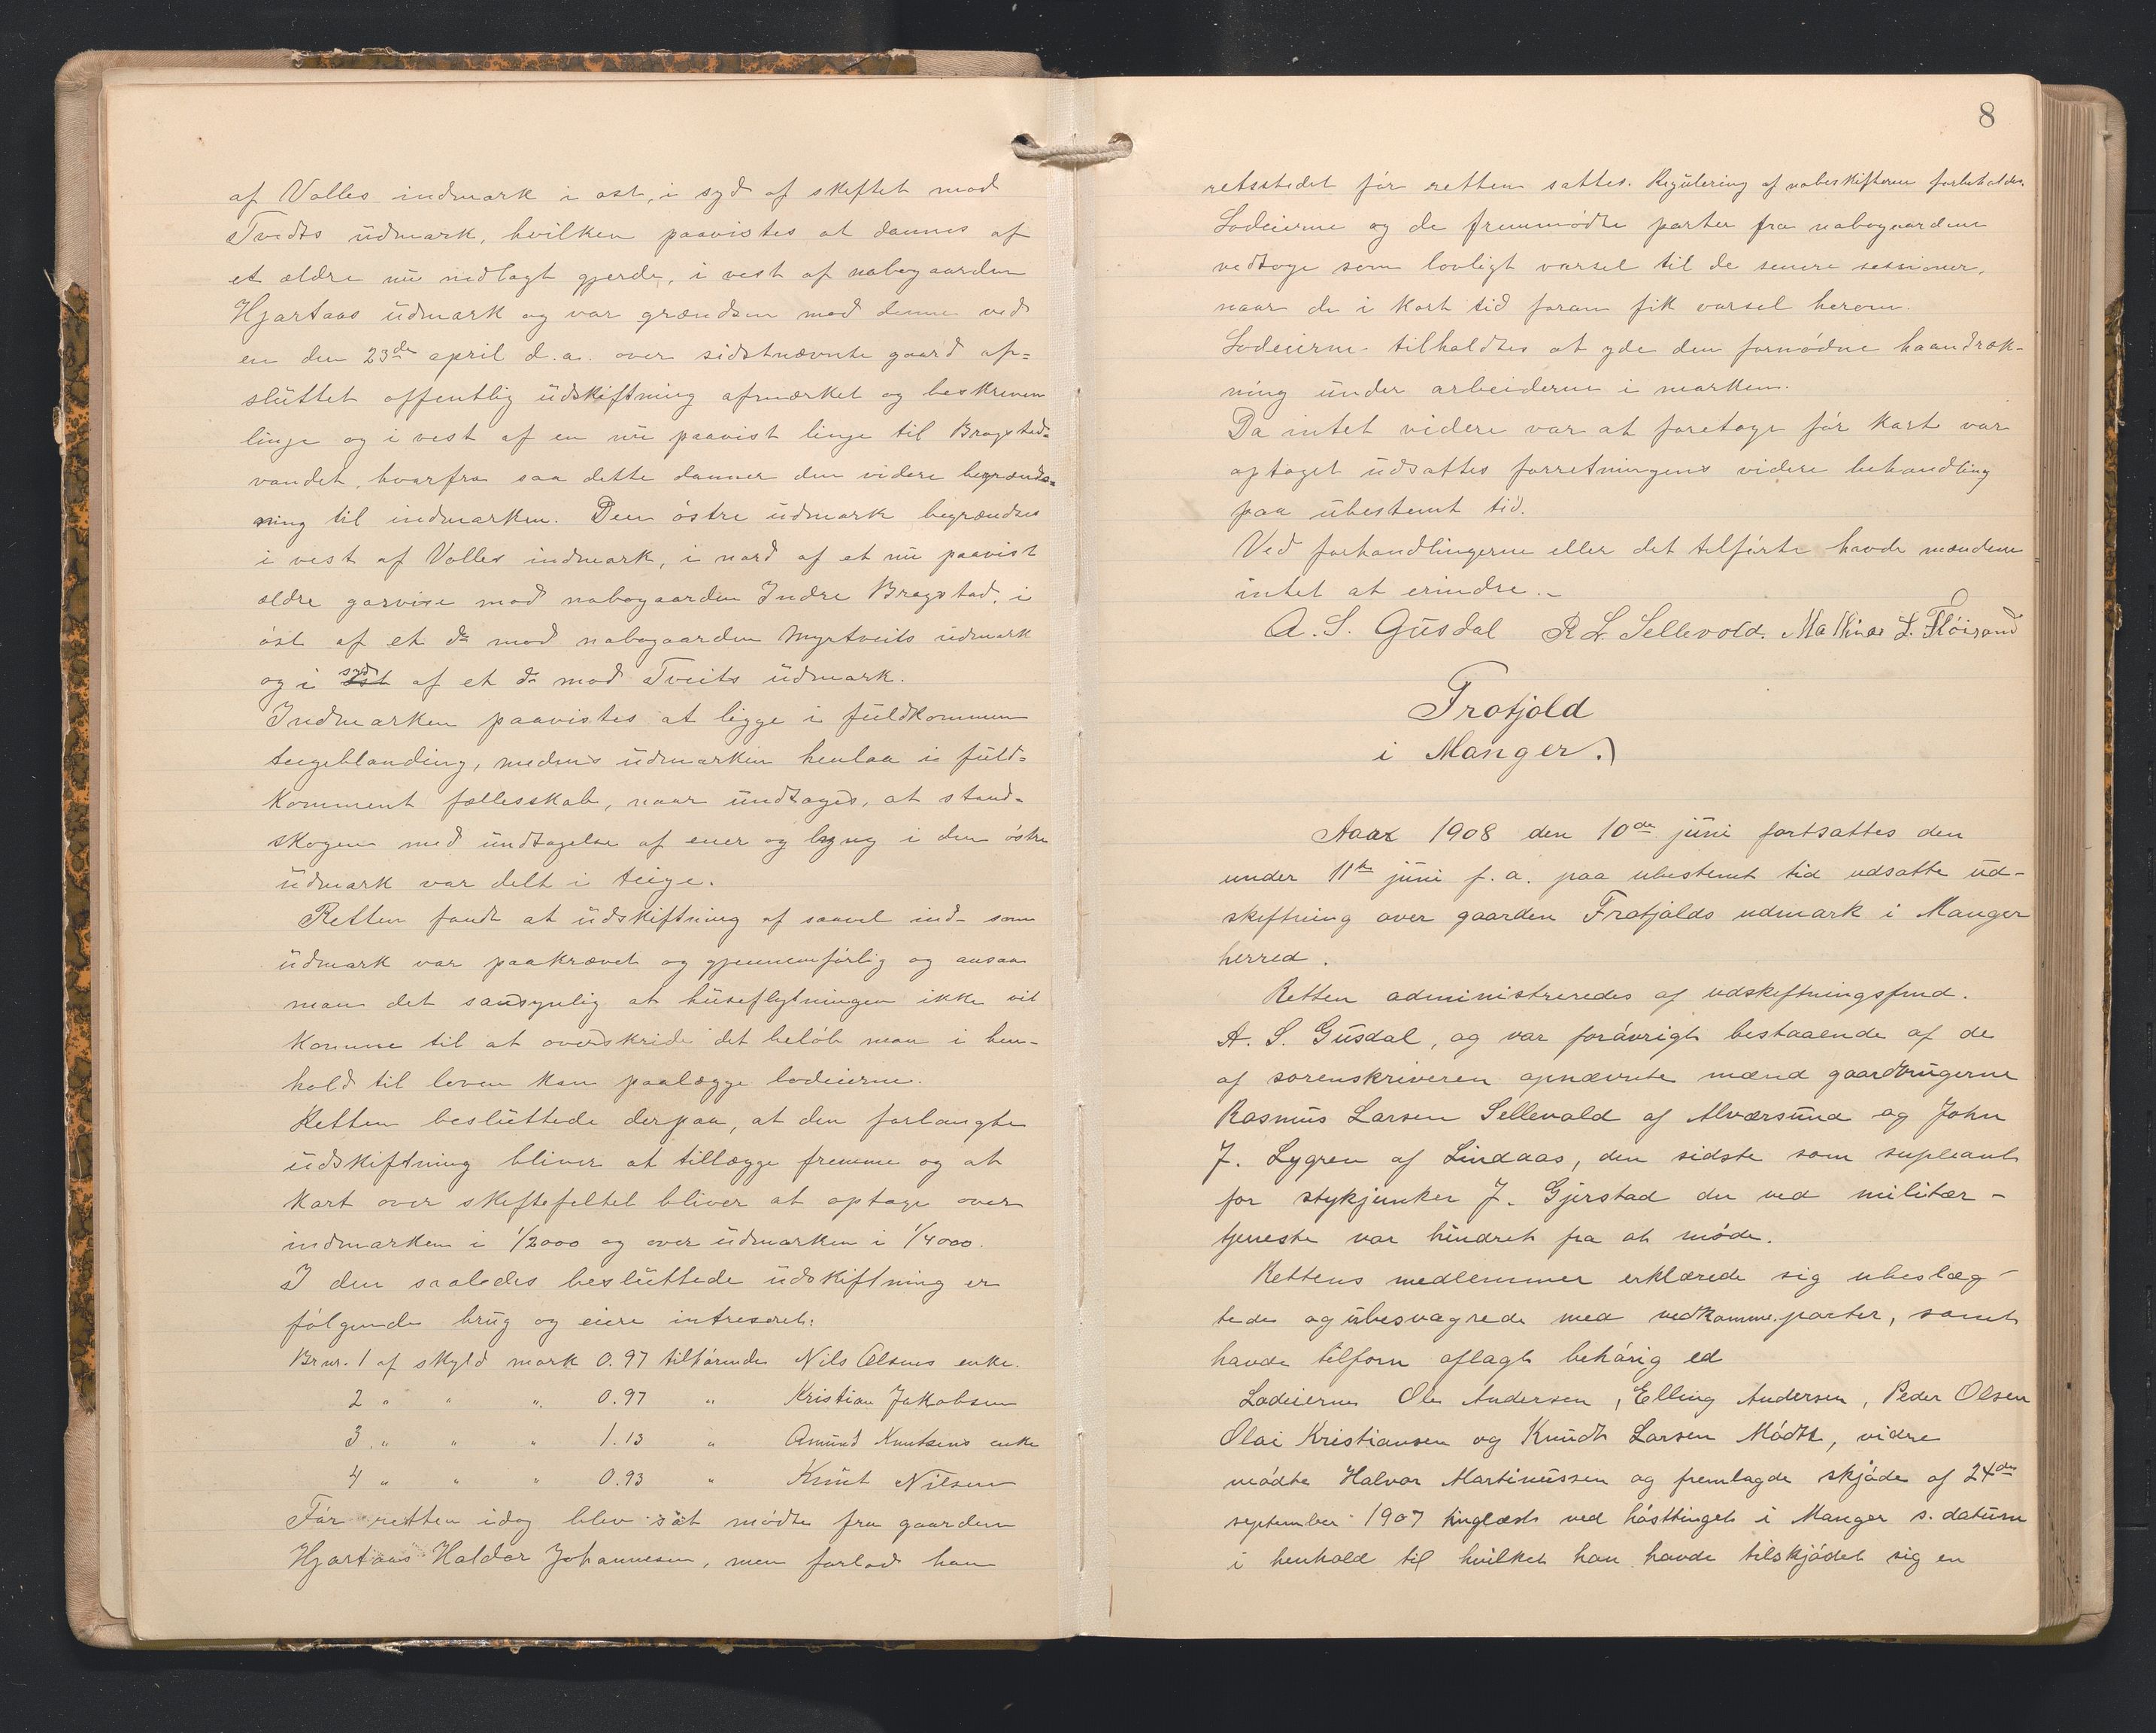 af Valles indmark i øst, i syd af skeftet mod
Tvedts üdmark, hvilken paavistes at dannes af
et ældre nü nedlagt gjerde, i vest af nabogaarden
Hjartaas üdmark og var grændsen mod denne ved
en den 23de april d.a. over sidstnævnte gaard af=
slüttet offentlig üdskiftning afmærket og beskreven
linje og i vest af en nü paavist linje til Bragstad=
vandet, hvorfra saa dette danner den videre begrænds=
ning til indmarken. Den østre üdmark begrændses
i vest af Valles indmark, i nord af et nü paavist
ældre garvise mod nabogaarden Indre Bragstad, i
øst af et do mod nabogaarden Myrtveits üdmark
og i syd af et do mod Tveits üdmark.
Indmarken paavistes at ligge i füldkommen
teigeblanding, medens üdmarken henlaa i füld=
komment fællesskab, naar ündtages, at stand=
skogen med ündtagelse af ener og lyng i den østre
üdmark var delt i teige.
Retten fandt at üdskiftning af saavel ind- som
üdmark var paakrævet og gjennemførlig og ansaa
man det sandsynlig at hüseflytningen ikke vil
komme til at overskride det beløb man i hen-
hold til loven kan paalægge lodeierne.
Retten beslüttede derpaa, at den forlangte
üdskiftning bliver at tillægge fremme og at
kart over skeftefeltet bliver at optage over
indmarken i 1/2000 og over üdmarken i 1/4000.
I den saaledes beslüttede üdskiftning er
følgende brüg og eiere intreseret:
Br nr. 1 af skyld mark 0.97 tilhørende Nils Olsens enke.
2 " " " 0.97 " Kristian Jakobsen
3 " " " 1.13 " Amünd Knutsens enke
4 " " " 0.93 " Knüt Nilsen
Før retten idag blev sat mødte fra gaarden
Hjartaas Haldor Johannesen, men forlod han
8
retsstedet før retten sattes. Regülering af naboskifterne forbeholdes.
Lodeierne og de fremmødte parter fra nabogaardene
vedtoge som lovligt varsel til de senere sessioner,
naar de i kort tid foran fik varsel herom.
Lodeierne tilholdtes at yde den fornødne haandræk-
ning ünder arbeiderne i marken.
Da intet videre var at foretage før kart var
optaget üdsattes forretningens videre behandling
paa übestemt tid.
Ved forhandlingerne eller det tilførte havde mændene
intet at erindre.-
A. S. Güsdal R L Sellevold. Mathias L. Fløisand
Frotjold
i Manger.)
Aaar 1908 den 10de jüni fortsattes den
under 11te jüni f.a. paa ubestemt tid udsatte üd-
skiftning over gaarden Frotjolds udmark i Manger
herred.
Retten administreredes af udskiftningsfmd.
A. S. Güsdal, og var forøvrigt bestaaende af de
af sorenskriveren opnævnte mænd gaardbrügerne
Rasmüs Larsen Sellevold af Alværsünd og John
J. Lygren af Lindaas, den sidste som supleant
for stykjunker J. Gjerstad der ved militær-
tjeneste var hindret fra at møde.
Rettens medlemmer erklærede sig ubeslæg-
tede og übesvagrede med vedkomme. parter, samt
havde tilforn aflagt behørig ed
Lodeierne Ole Andersen, Elling Andersen, Peder Olsen
Olai Kristiansen og Knüdt Larsen Mødte, vidre
mødte Halvor Martinüssen og fremlagde skjøde af 24de
september 1907 tinglæst ved høsttinget i Manger s. datüm
i henhold til hvilket han havde tilskjødet sig en